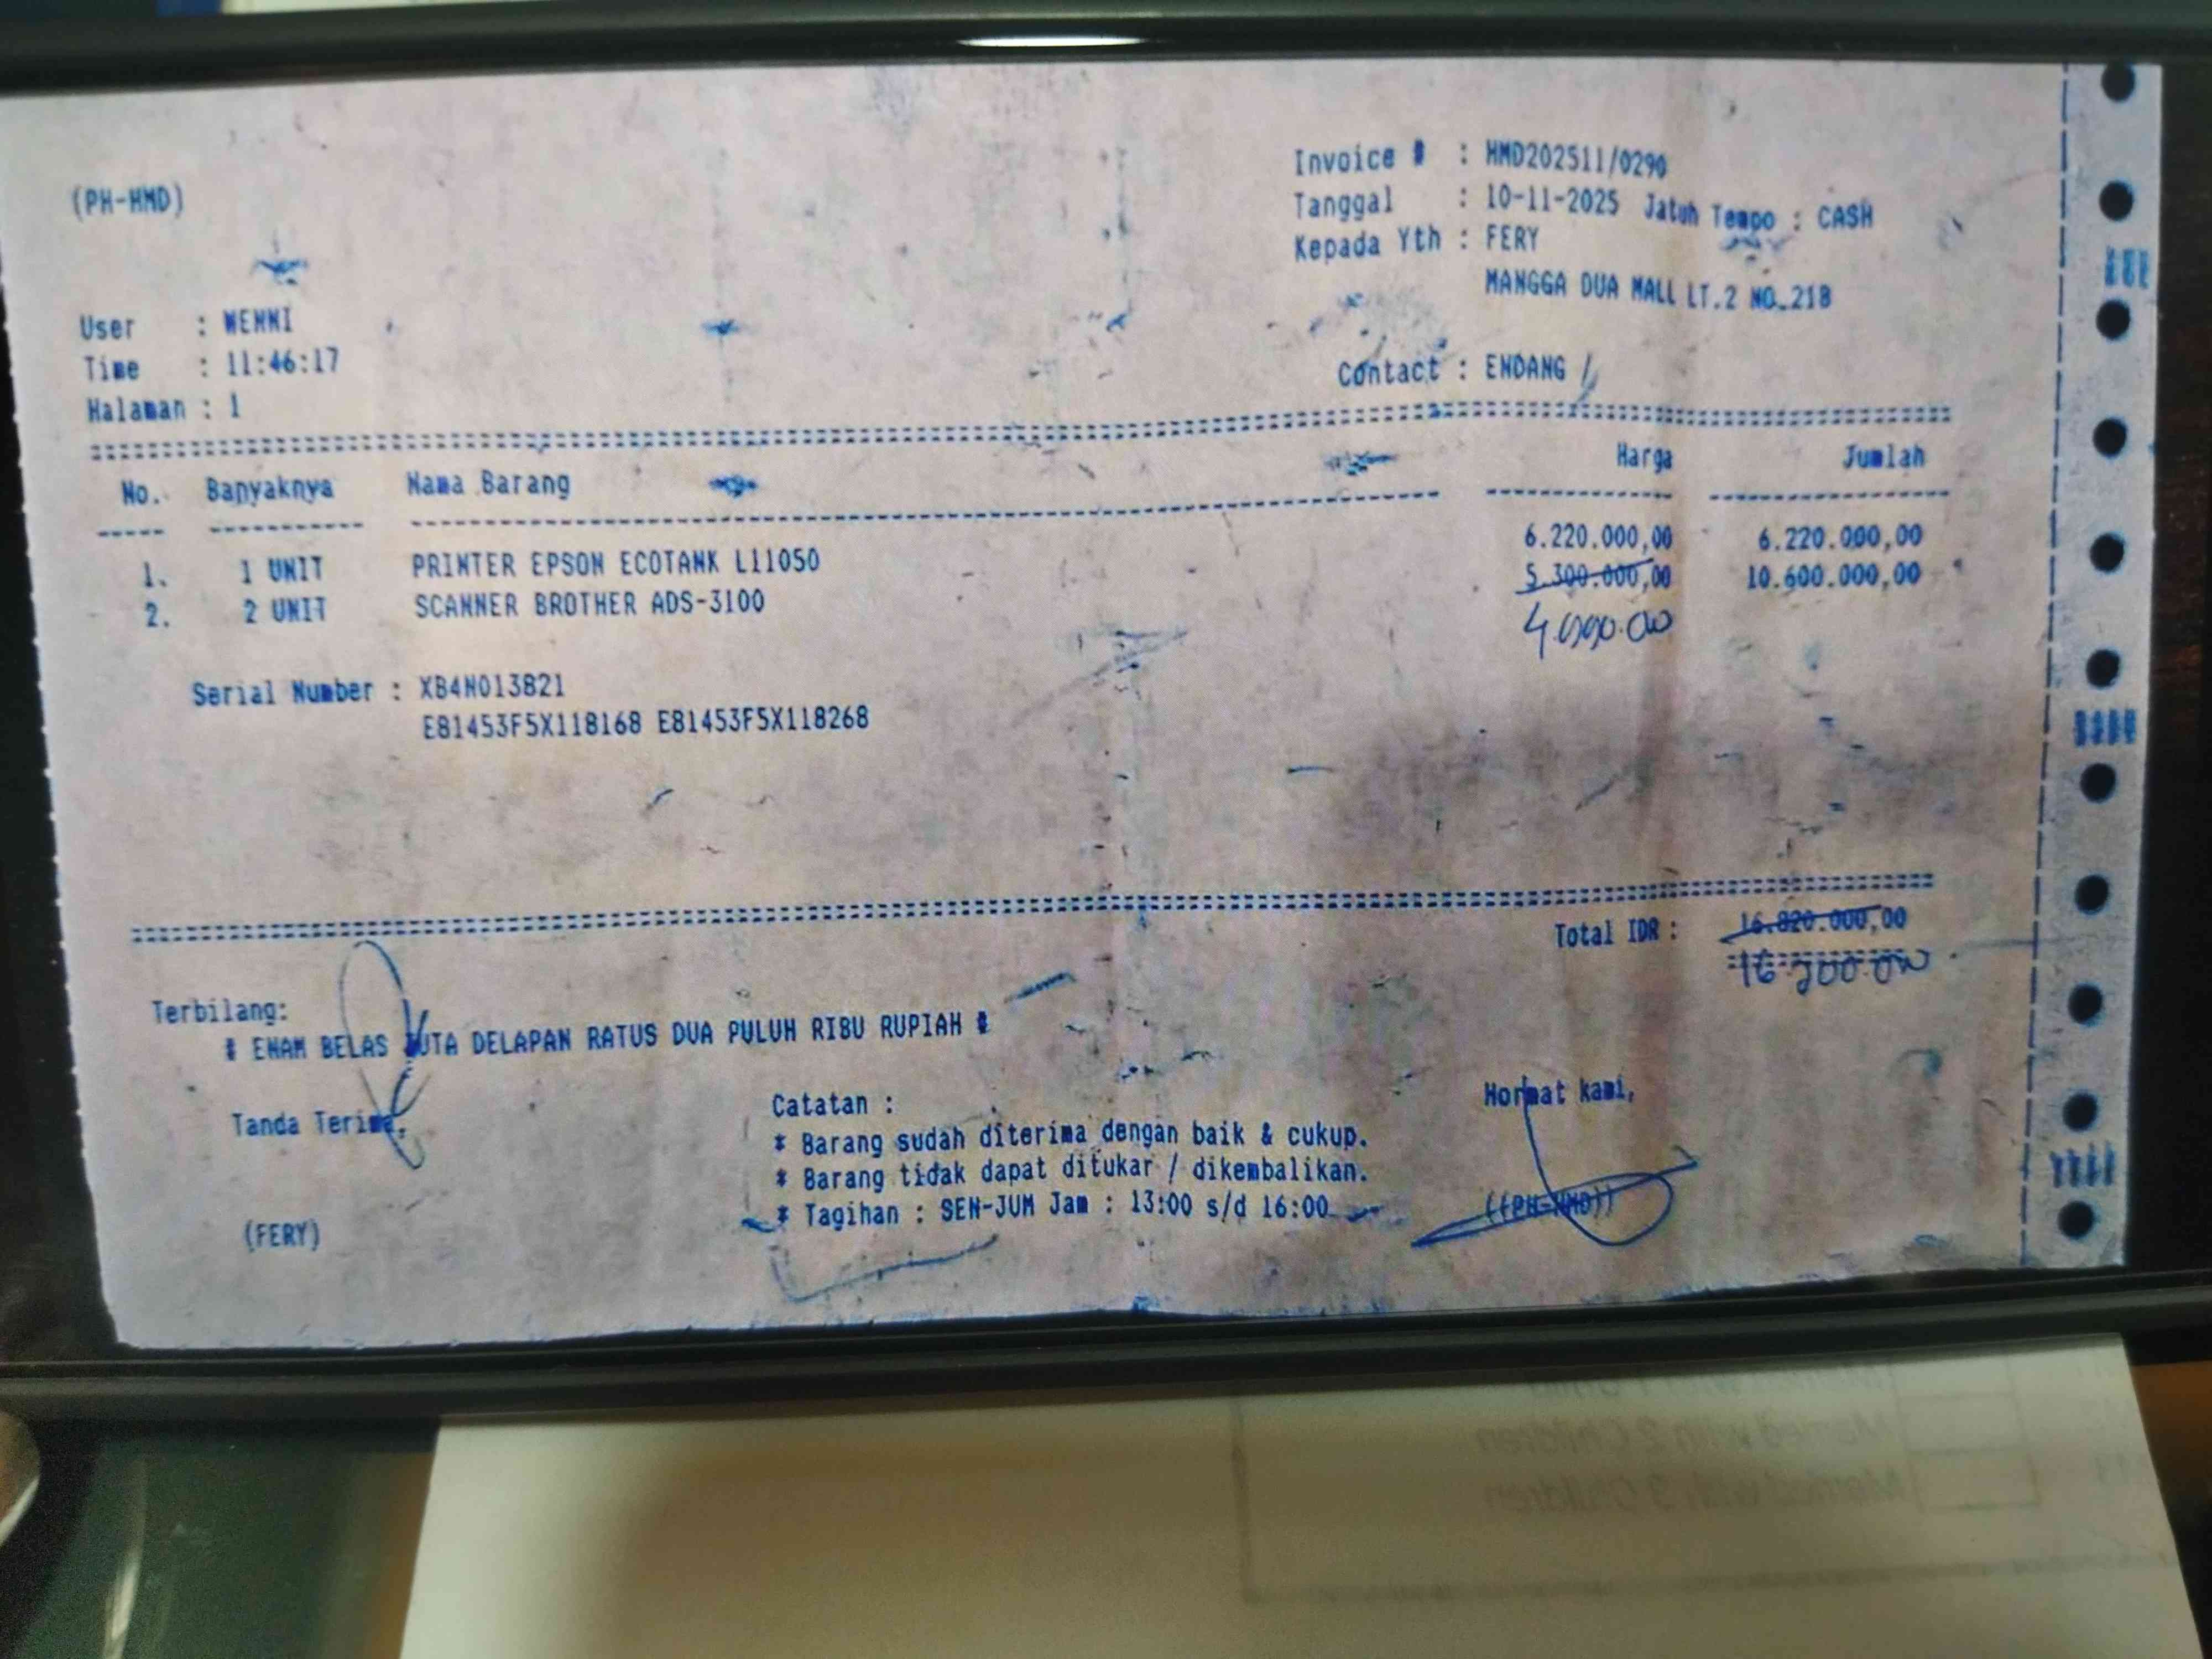 (PH-HMD)
Invoice # : HMD202511/0290
Tanggal : 10-11-2025 Jatuh Tempo : CASH
Kepada Yth : FERY
MANGGA DUA MALL LT.2 NO.21B
User : WENNI
Time : 11:46:17
Halaman : 1
Contact : ENDANG /
No. Banyaknya Nama Barang Harga Jumlah
1. 1 UNIT PRINTER EPSON ECOTANK L11050 6.220.000,00 6.220.000,00
2. 2 UNIT SCANNER BROTHER ADS-3100 5.300.000,00 10.600.000,00
Serial Number : XB4N013821
E81453F5X118168 E81453F5X118268
Total IDR : 16.820.000,00
16.200.000
Terbilang:
# ENAM BELAS JUTA DELAPAN RATUS DUA PULUH RIBU RUPIAH #
Tanda Terima,
Catatan :
* Barang sudah diterima dengan baik & cukup.
* Barang tidak dapat ditukar / dikembalikan.
* Tagihan : SEN-JUM Jam : 13:00 s/d 16:00
Hormat kami,
(FERY)
((PH-HMD))
Married with 2 Children
Married with 3 Children